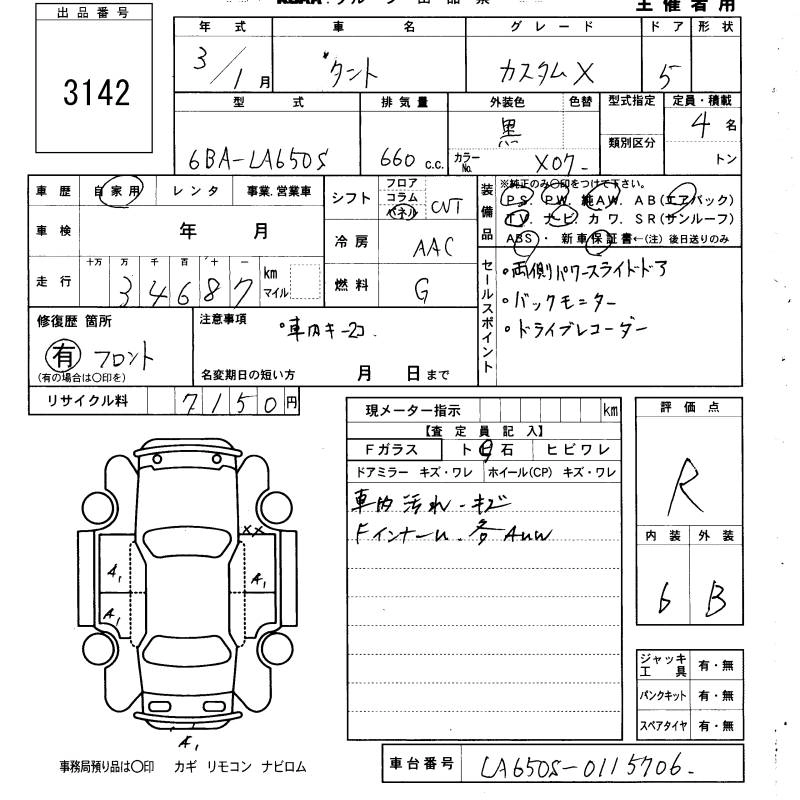 出品番号
3142
主催者用
年式 車名 グレード ドア 形状
3/1月 タント カスタムX 5
型式 排気量 外装色 色替 型式指定 定員・積載
6BA-LA650S 660 c.c. 黒 類別区分 4名
カラーNo. X07 トン
車歴 自家用 レンタ 事業.営業車
車検 年 月
走行 十万 万 千 百 十 一
34687 km マイル
シフト フロア コラム パネル CVT
冷房 AAC
燃料 G
装備品
※純正のみ○印をつけて下さい。
PS. PW. 純AW. AB(エアバック)
TV. ナビ カワ. SR(サンルーフ)
ABS ・ 新車保証書←(注) 後日送りのみ
セールスポイント
・両側パワースライドドア
・バックモニター
・ドライブレコーダー
修復歴 箇所
有 フロント
(有の場合は○印を)
注意事項
・車内キー2コ.
名変期日の短い方 月 日まで
リサイクル料 7150円
現メーター指示 km
【査定員記入】
Fガラス トビ石 ヒビワレ
ドアミラー キズ・ワレ ホイール(CP) キズ・ワレ
車内 汚れ・キズ
Fインナーu. 各AUW
評価点
R
内装 外装
6 B
XX
A1
A1
A1
A1
ジャッキ工具 有・無
パンクキット 有・無
スペアタイヤ 有・無
事務局預り品は○印 カギ リモコン ナビロム
車台番号 LA650S-0115706.